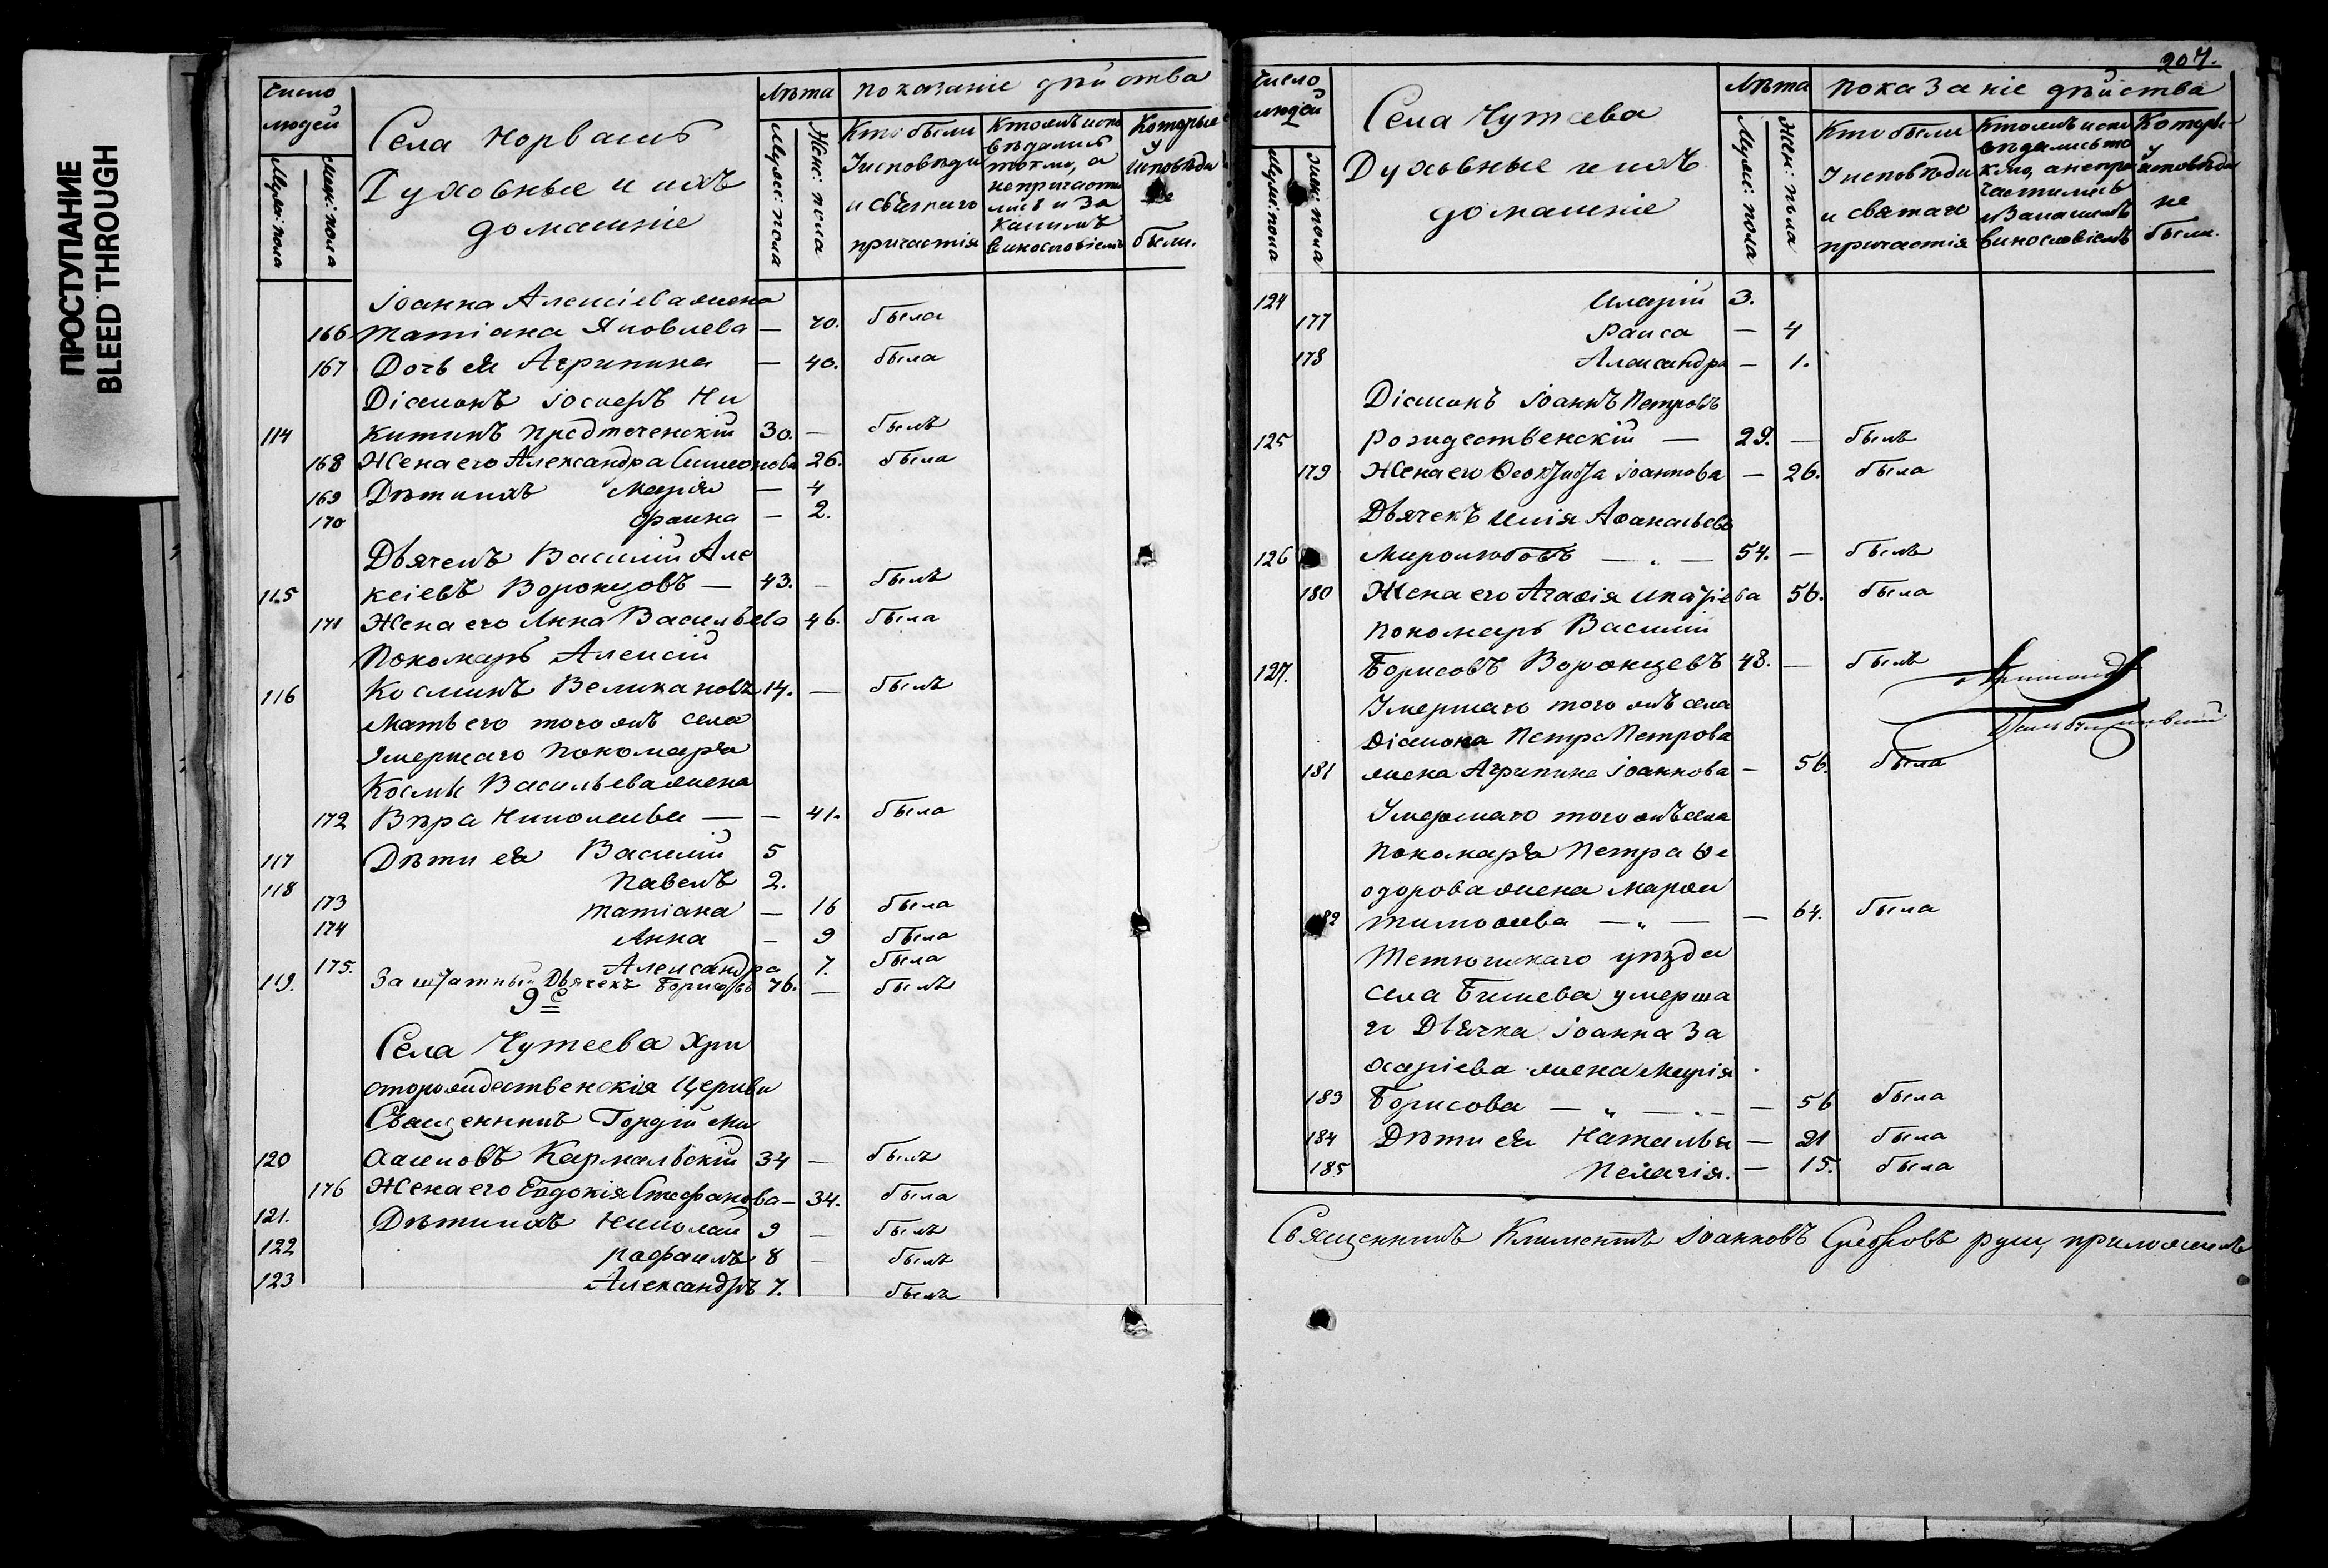 ПРОСТУПАНИЕ
BLEED THROUGH
Число людей
Муже: пола
Жен: пола
Села Норвашь
Духовные и ихъ
домашніе
Лѣта
Муже: пола
Жен: пола
показаніе дѣйства
Кто были
У исповѣди
и святаго
причастія
Кто исповѣдались
токмо, а
не причасти
лись и за
какимъ
винословіемъ
Которые
у
исповѣди
не
были.
Іоанна Алексіева жена
166 Татіана Яковлева — 70. была
167 Дочь ея Агрипина — 40. была
Діаконъ Іосифъ Ни
114 китинъ Предтеченскій 30. — былъ
168 Жена его Александра Симеонова 26. была
169 Дѣти ихъ Марія — 4
170 Фаина — 2.
Дьячекъ Василій Але
115 ксіевъ Воронцовъ — 43. — былъ
171 Жена его Анна Васильева 46. была
Пономарь Алексій
116 Косминъ Великановъ 14. — былъ
Мать его того жъ села
Умершаго Пономаря
Космы Васильева жена
172 Вѣра Николаева — — 41. была
117 Дѣти ея Василій 5
118 Павелъ 2.
173 Татіана — 16 была
174 Анна — 9 была
175. Александра 7. была
119. Заштатный Дьячекъ Борисовъ 76. — былъ
9е
Села Чутеева Хри
сторождественскія Церкви
Священникъ Гордій Ми
120 хаиловъ Кармальскій 34 — былъ
176 Жена его Евдокія Стефанова — 34. была
121. Дѣти ихъ Николай 9 — былъ
122 Рафаилъ 8 — былъ
123 Александръ 7. былъ
207.
Число
людей
Муже: пола
Жен: пола
Села Чутеева
Духовные и ихъ
домашніе
Лѣта
Муже: пола
Жен: пола
показаніе дѣйства
Кто были
У исповѣди
и святаго
причастія
Кто исповѣдались то
кмо, а не при
частились
и за какимъ
винословіемъ
Которые
у
исповѣди
не
были.
124 Иларій 3.
177 Раиса — 4
178 Александра — 1.
Діаконъ Іоаннъ Петровъ
125 Рождественскій — 29. — былъ
179 Жена его Феоктиста Іоаннова — 26. была
Дьячекъ Илія Афанасьевъ
126 Миролюбовъ — „ — 54. — былъ
180 Жена его Агафія Ипатіева 56. была
Пономарь Василій
127. Борисовъ Воронцевъ 48. — былъ
Умершаго того жъ села
Діакона Петра Петрова
181 жена Агрипина Іоаннова — 56. была
Умершаго того жъ села
Пономаря Петра Фе
одорова жена Марфа
182 Тимофеева — „ — — 64. была
Тетюшскаго уѣзда
села Бишева умерша
го Дьячка Іоанна За
харіева жена Марія
183 Борисова — „ — — 56 была
184 Дѣти ея Наталья — 21 была
185 Пелагія. — 15. была
Священникъ Климентъ Іоанновъ руку приложилъ